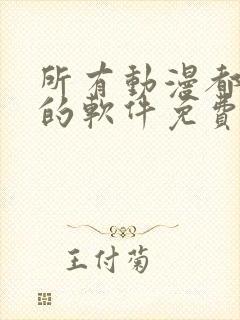 所有動漫都
的軟件免費
王付菊